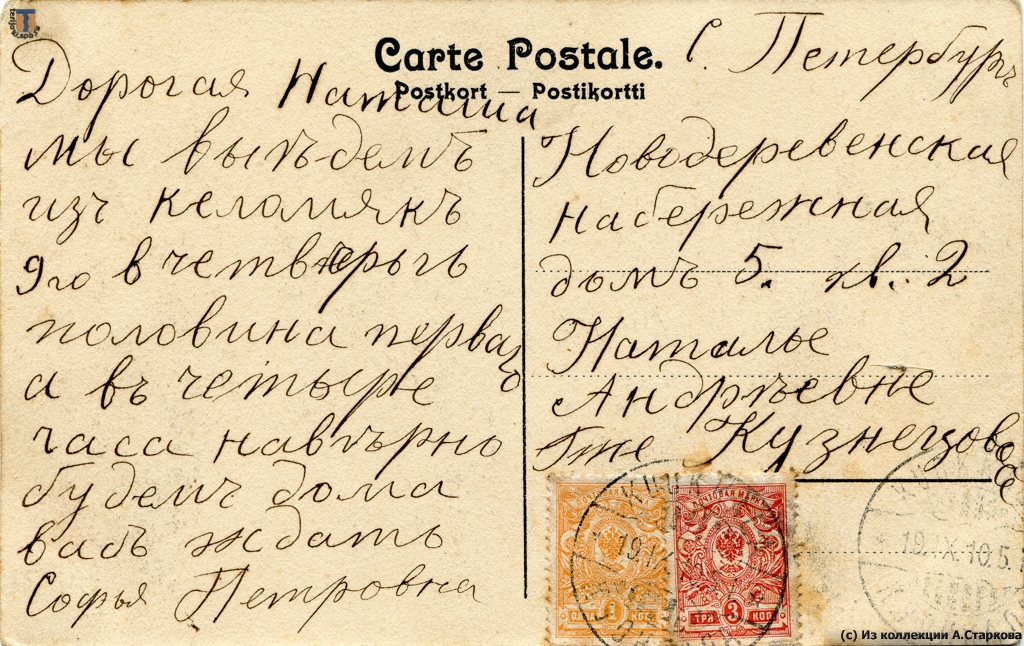 Carte Postale.
Postkort — Postikortti
Дорогая Наташа
мы выѣдемъ
изъ Келомякъ
9го в четвергъ
половина перваго
а въ четыре
часа навѣрно
будемъ дома
васъ ждать
Софья Петровна
С. Петербургъ
Новодеревенская
набережная
домъ 5. кв. 2
Наталье
Андрѣевне
Гже Кузнецовой
ПОЧТОВАЯ МАРКА
1 КОП
ТРИ 3 КОП
19. X. 10. 5.
terijoki.spb.ru
(c) Из коллекции А.Старкова